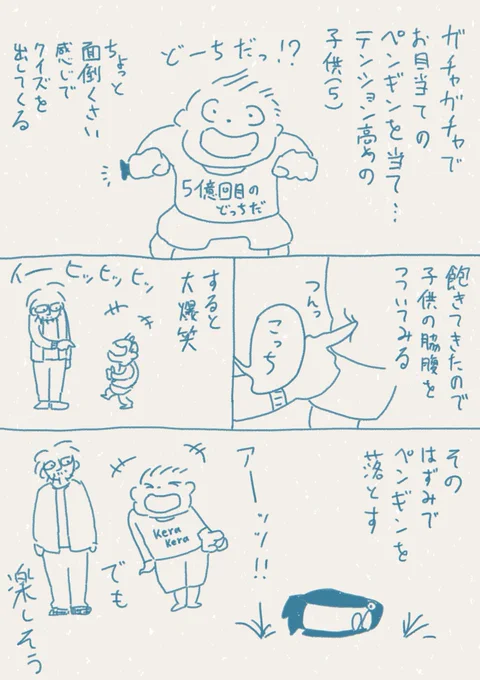 ガチャガチャで
お目当ての
ペンギンを当て…
テンション高めの
子供(5)
どーちだっ!?
ちょっと
面倒くさい
感じで
クイズを
出してくる
5億回目の
どっちだ
飽きてきたので
子供の脇腹を
つついてみる
つんっ
こっち
すると
大爆笑
イーヒッヒッヒッ
その
はずみで
ペンギンを
落とす
アーーッッ!!
Kera
Kera
でも
楽しそう